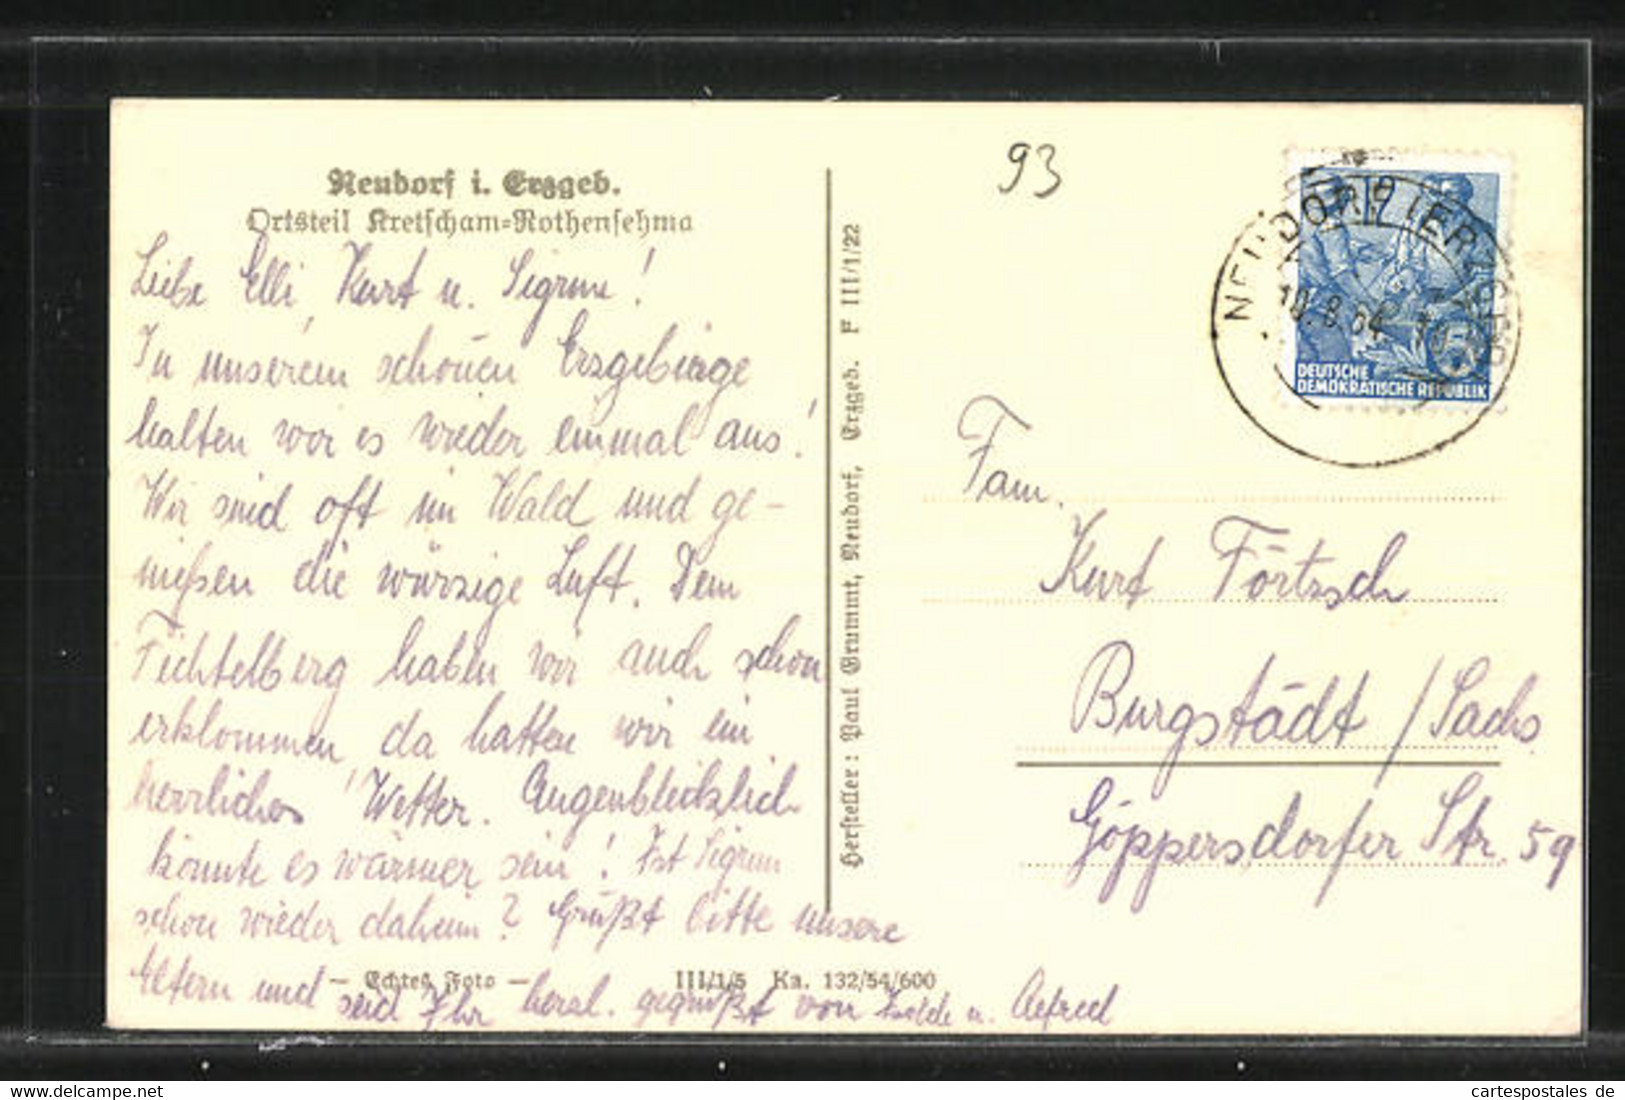 Neudorf i. Erzgeb.
Ortsteil Kretscham=Rothensehma
Liebe Elli, Kurt u. Sigrun!
In unserem schönen Erzgebirge
halten wir es wieder einmal aus!
Wir sind oft im Wald und ge-
nießen die würzige Luft. Dem
Fichtelberg haben wir auch schon
erklommen, da hatten wir ein
herrliches Wetter. Augenblicklich
könnte es wärmer sein! Ist Sigrun
schon wieder daheim? Grüßt bitte unsere
Eltern und seid Ihr herzl. gegrüßt von u. Alfred
– Echtes Foto –
III/1/5 Ka. 132/54/600
Hersteller: Paul Grummt, Neudorf, Erzgeb. F III/1/22
93
NEUDORF (ERZGEB)
10.8.54
5
DEUTSCHE
DEMOKRATISCHE REPUBLIK
Fam.
Kurt Förtzsch
Burgstädt / Sachs.
Göppersdorfer Str. 59
Vente sur www.delcampe.net
cartespostales de